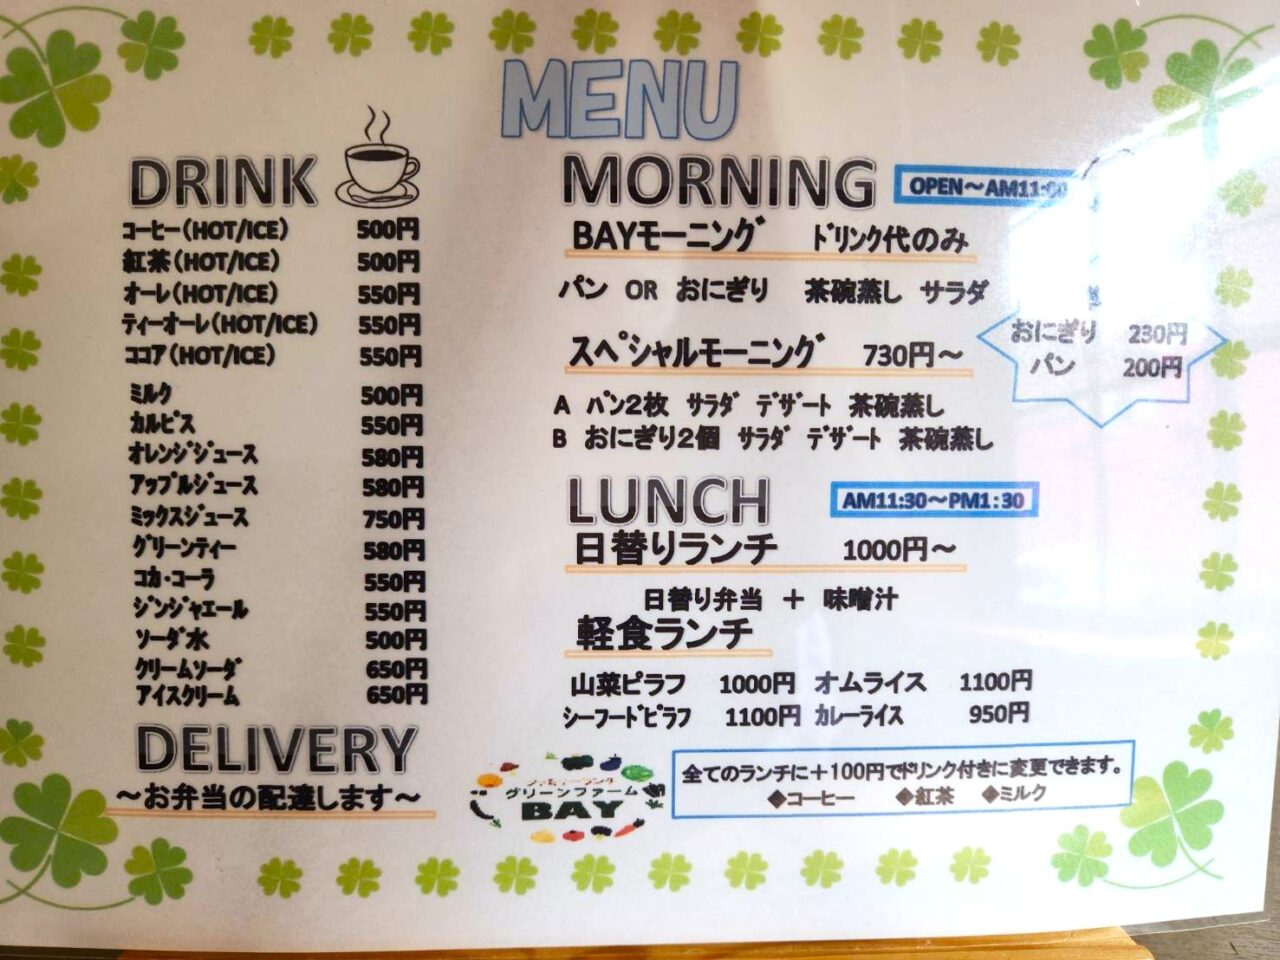 MENU
DRINK
コーヒー(HOT/ICE) 500円
紅茶(HOT/ICE) 500円
オーレ(HOT/ICE) 550円
ティーオーレ(HOT/ICE) 550円
ココア(HOT/ICE) 550円
ミルク 500円
カルピス 550円
オレンジジュース 580円
アップルジュース 580円
ミックスジュース 750円
グリーンティー 580円
コカ・コーラ 550円
ジンジャエール 550円
ソーダ水 500円
クリームソーダ 650円
アイスクリーム 650円
DELIVERY
～お弁当の配達します～
MORNING OPEN～AM11:00
BAYモーニング ドリンク代のみ
パン OR おにぎり 茶碗蒸し サラダ
スペシャルモーニング 730円～
A パン2枚 サラダ デザート 茶碗蒸し
B おにぎり2個 サラダ デザート 茶碗蒸し
おにぎり 230円
パン 200円
LUNCH AM11:30～PM1:30
日替りランチ 1000円～
日替り弁当 ＋ 味噌汁
軽食ランチ
山菜ピラフ 1000円 オムライス 1100円
シーフードピラフ 1100円 カレーライス 950円
グリーンファーム
BAY
全てのランチに＋100円でドリンク付きに変更できます。
◆コーヒー ◆紅茶 ◆ミルク